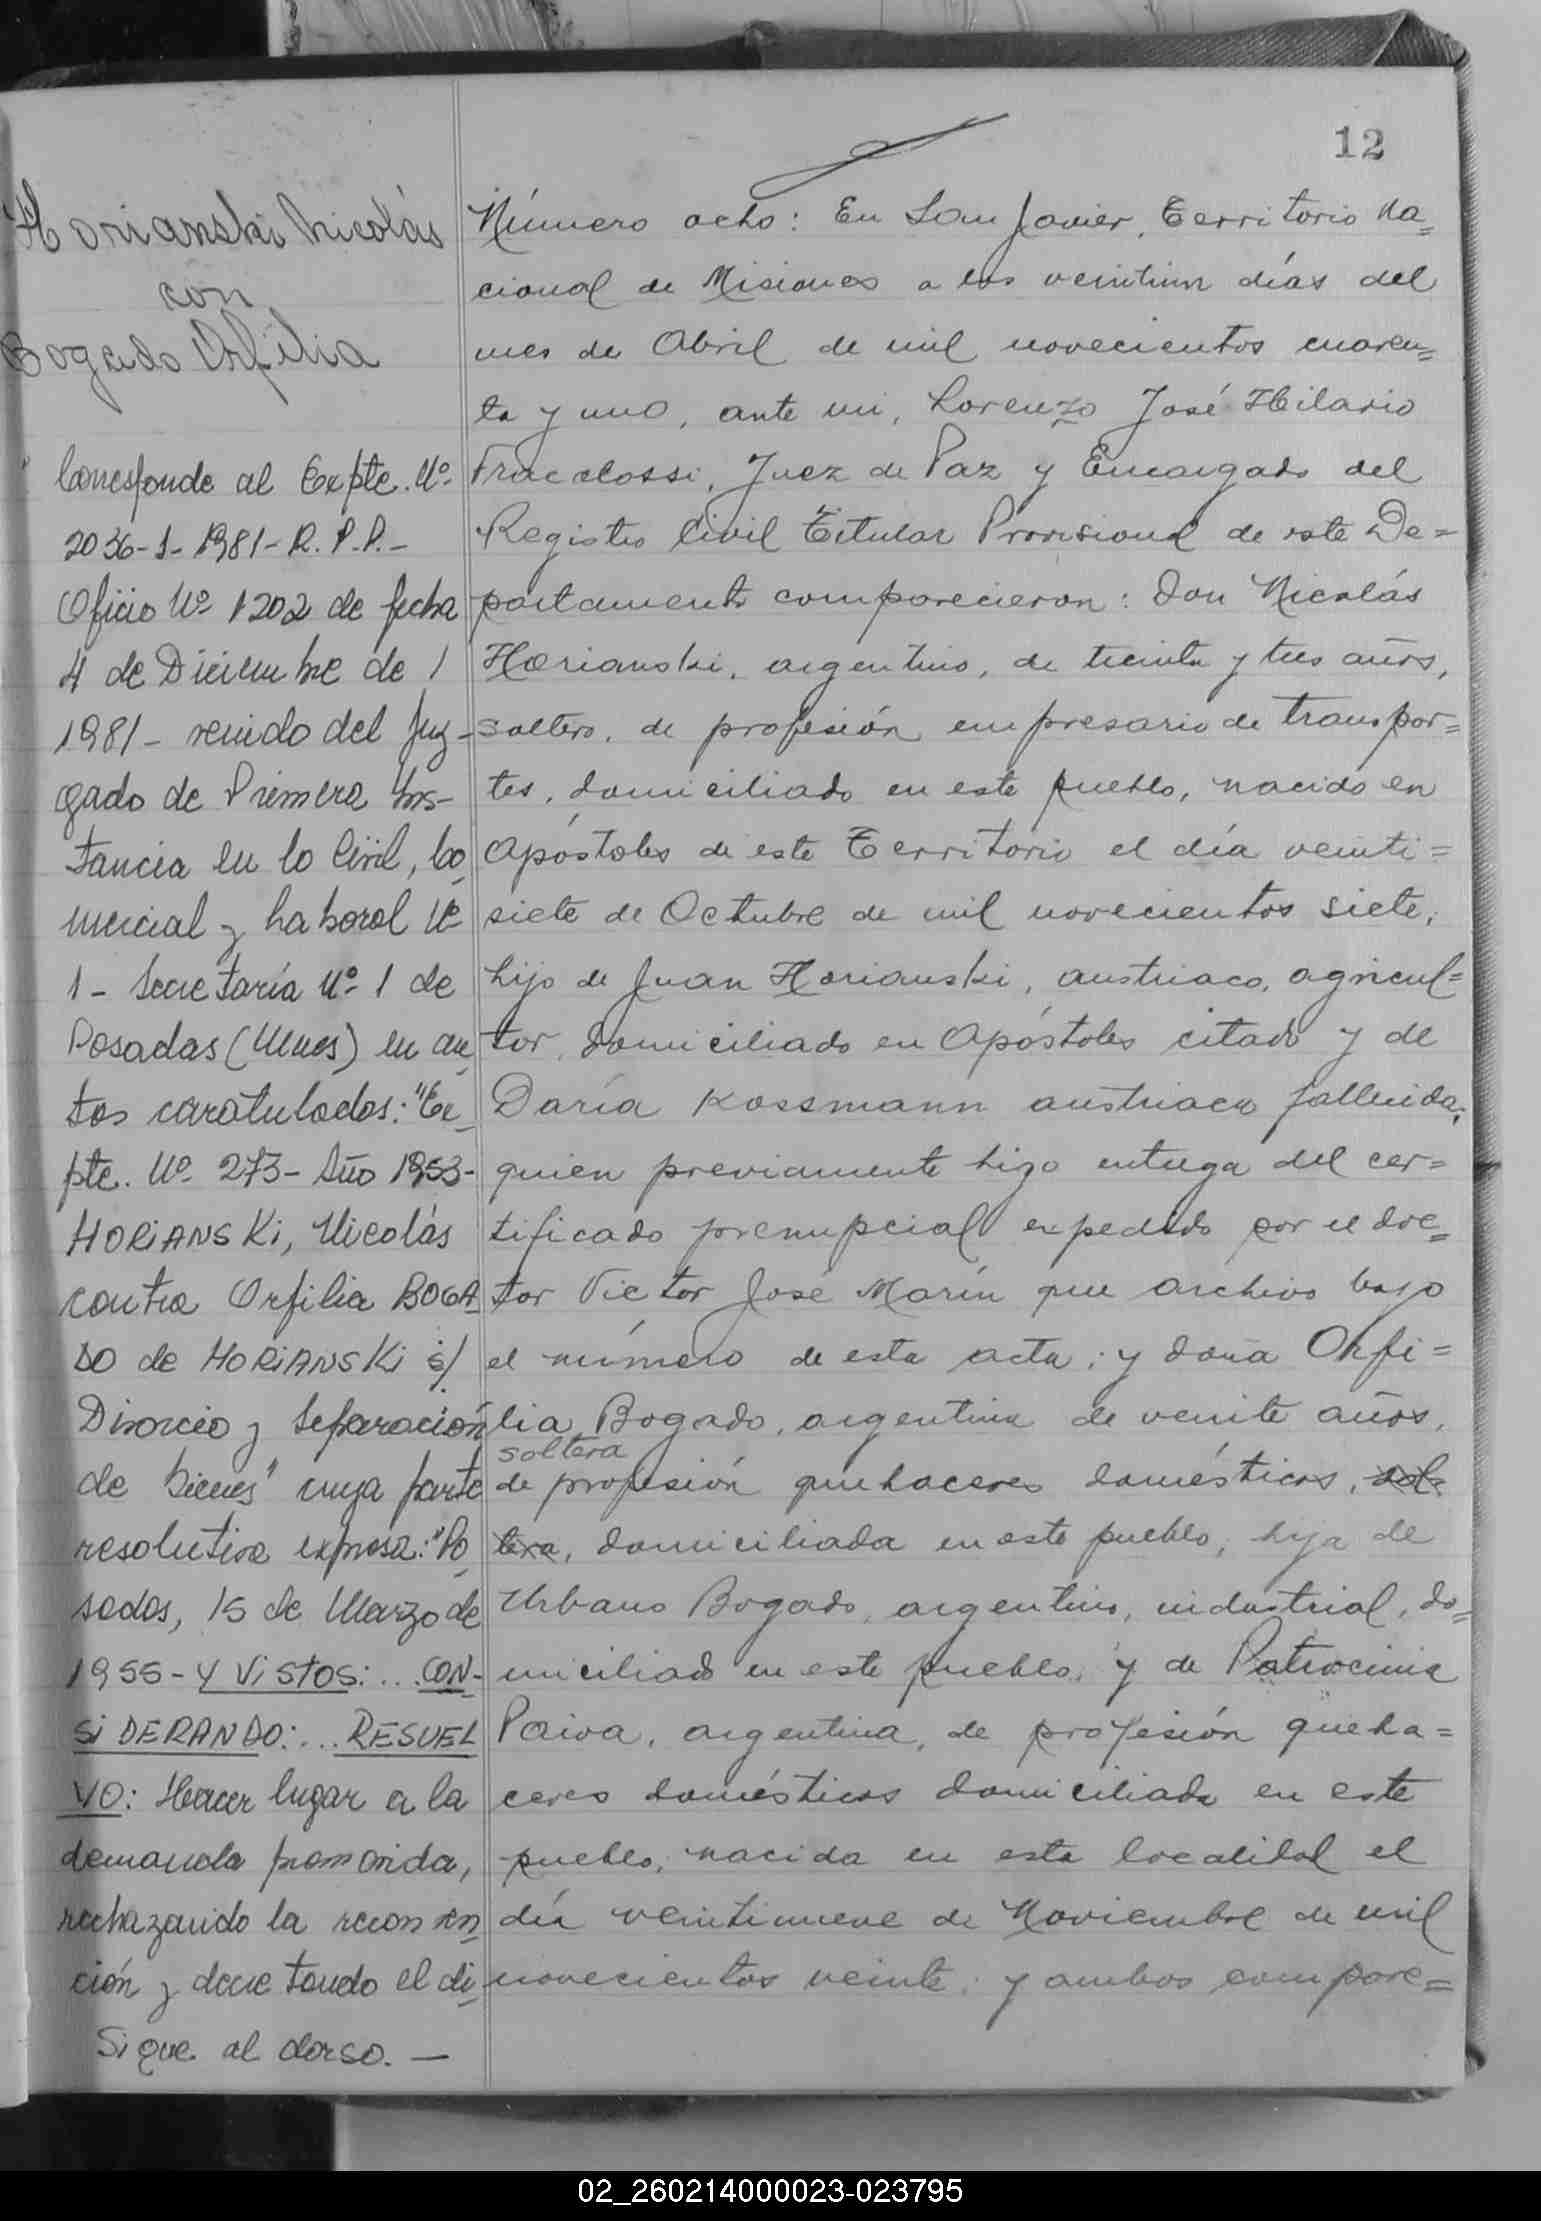 12
Horianski Nicolás
con
Bogado Orfilia
Corresponde al Expte. Nº
2036-J-1981-R.P.P.-
Oficio Nº 1202 de fecha
4 de Diciembre de
1981- venido del Juz-
gado de Primera Ins-
tancia en lo Civil, Co-
mercial y Laboral Nº
1- Secretaría Nº 1 de
Posadas (Mnes) en au-
tos caratulados: "Ex-
pte. Nº 273- Año 1953-
HORIANSKi, Nicolás
contra Orfilia BOGA-
DO de HORIANSKi s/
Divorcio y Separación
de bienes" cuya parte
resolutiva expresa: "Po-
sadas, 15 de Marzo de
1955- Y ViSTOS: ... CON-
SiDERANDO: ... RESUEL
VO: Hacer lugar a la
demanda promovida,
rechazando la reconven-
ción y decretando el di-
Sigue al dorso. —
Número ocho: En San Javier, Territorio Na=
cional de Misiones a los veintiun días del
mes de Abril de mil novecientos cuaren=
ta y uno, ante mi, Lorenzo José Hilario
Fracalossi, Juez de Paz y Encargado del
Registro Civil Titular Provisional de este De=
partamento comparecieron: Don Nicolás
Horianski, argentino, de treinta y tres años,
soltero, de profesión empresario de transpor=
tes, domiciliado en este pueblo, nacido en
Apóstoles de este Territorio el día veinti=
siete de Octubre de mil novecientos siete,
hijo de Juan Horianski, austriaco, agricul=
tor, domiciliado en Apóstoles citado y de
Daría Kossmann austriaca fallecida;
quien previamente hizo entrega del cer=
tificado prenupcial expedido por el doc=
tor Victor José Marín que archivo bajo
el número de esta acta; y doña Orfi=
lia Bogado, argentina de veinte años,
soltera
de profesión quehaceres domésticos, sol=
tera, domiciliada en este pueblo, hija de
Urbano Bogado, argentino, industrial, do=
miciliado en este pueblo, y de Patrocinia
Paiva, argentina, de profesión queha=
ceres domésticos domiciliada en este
pueblo, nacida en esta localidad el
día veintinueve de Noviembre de mil
novecientos veinte; y ambos compare=
02_260214000023-023795